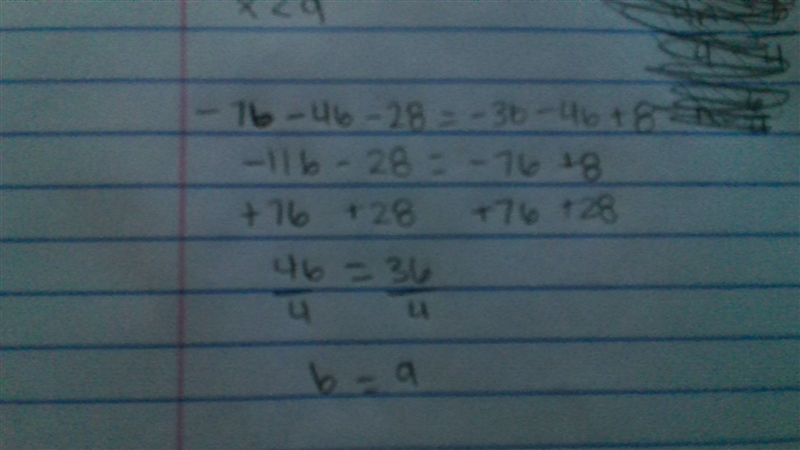 x < 9
-7b - 4b - 28 = -3b - 4b + 8
-11b - 28 = -7b + 8
+7b +28 +7b +28
4b = 36
4 4
b = 9